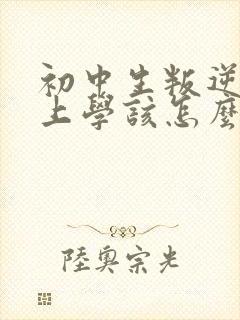 初中生叛逆
上學該怎麼
陸奧宗光